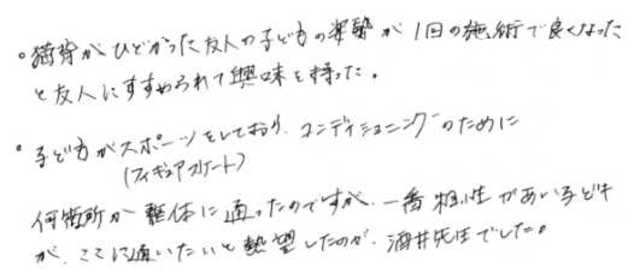 。猫背がひどかった友人の子どもの姿勢が1回の施術で良くなった
と友人にすすめられて興味を持った。
・子どもがスポーツをしており、コンディショニングのために
(フィギュアスケート)
何箇所か整体に通ったのですが、一番相性があい子ども
が、ここに通いたいと熱望したのが、酒井先生でした。